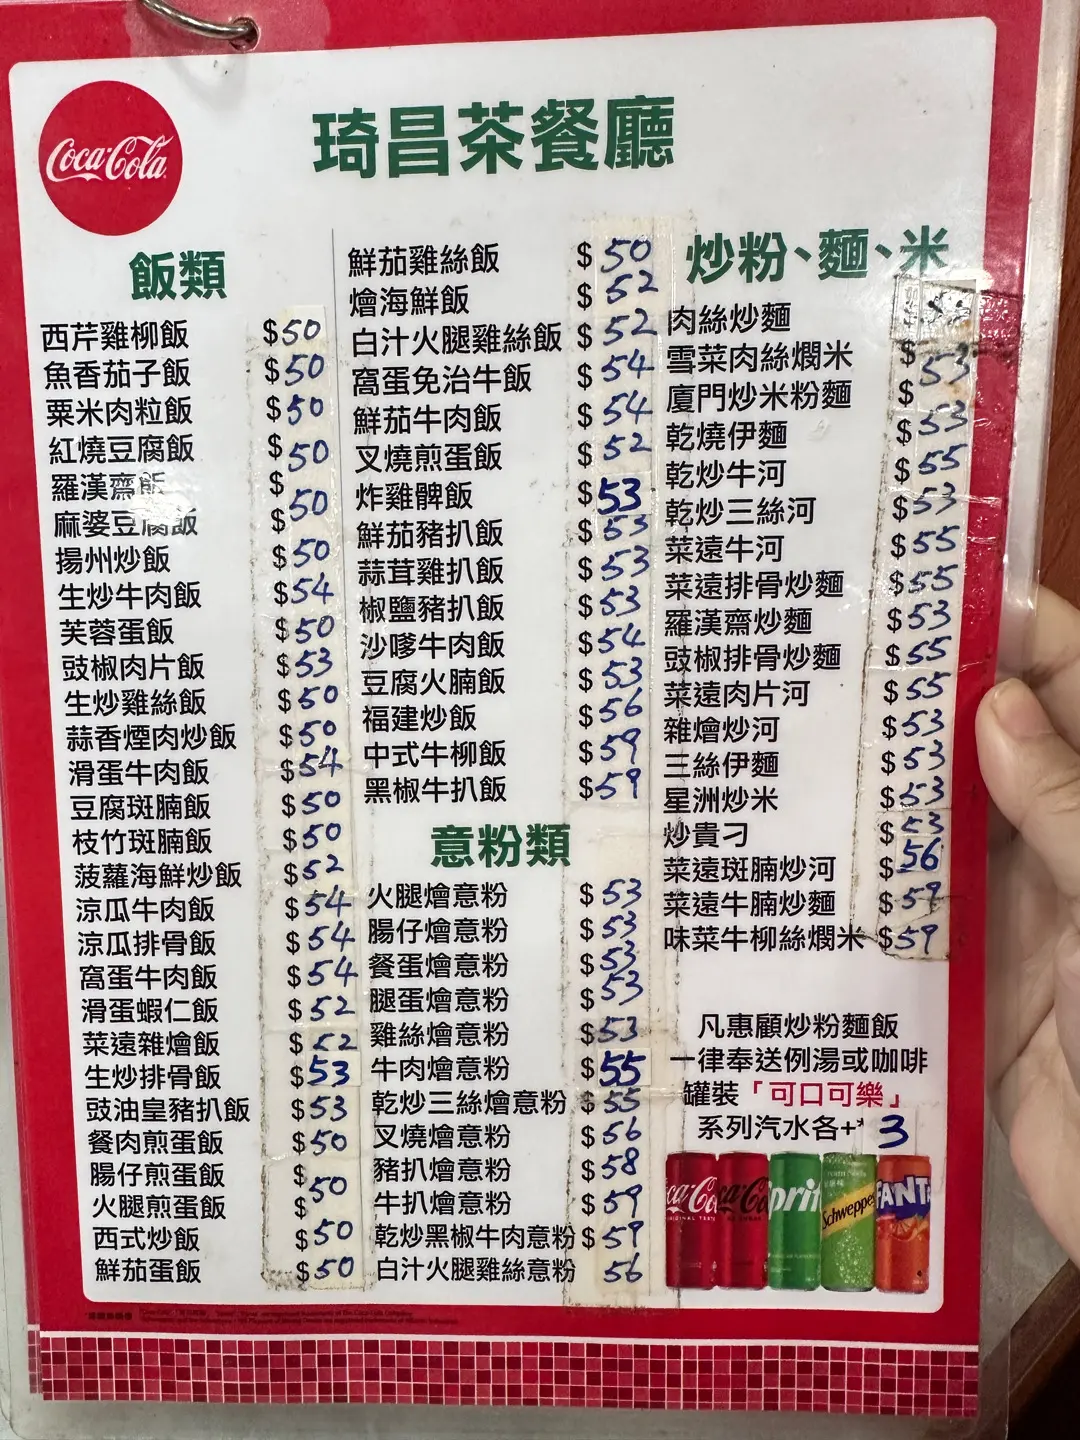 Coca-Cola
琦昌茶餐廳
飯類
西芹雞柳飯 $50
魚香茄子飯 $50
粟米肉粒飯 $50
紅燒豆腐飯 $50
羅漢齋飯 $
麻婆豆腐飯 $50
揚州炒飯 $50
生炒牛肉飯 $54
芙蓉蛋飯 $50
豉椒肉片飯 $53
生炒雞絲飯 $50
蒜香煙肉炒飯 $50
滑蛋牛肉飯 $54
豆腐斑腩飯 $50
枝竹斑腩飯 $50
菠蘿海鮮炒飯 $52
涼瓜牛肉飯 $54
涼瓜排骨飯 $54
窩蛋牛肉飯 $54
滑蛋蝦仁飯 $52
菜遠雜燴飯 $52
生炒排骨飯 $53
豉油皇豬扒飯 $53
餐肉煎蛋飯 $50
腸仔煎蛋飯 50
火腿煎蛋飯 $
西式炒飯 $50
鮮茄蛋飯 $50
鮮茄雞絲飯 $50
燴海鮮飯 $52
白汁火腿雞絲飯 $52
窩蛋免治牛飯 $54
鮮茄牛肉飯 $54
叉燒煎蛋飯 $52
炸雞髀飯 $53
鮮茄豬扒飯 $53
蒜茸雞扒飯 $53
椒鹽豬扒飯 $53
沙嗲牛肉飯 $54
豆腐火腩飯 $53
福建炒飯 $56
中式牛柳飯 $59
黑椒牛扒飯 $59
意粉類
火腿燴意粉 $53
腸仔燴意粉 $53
餐蛋燴意粉 $53
腿蛋燴意粉 $53
雞絲燴意粉 $53
牛肉燴意粉 $55
乾炒三絲燴意粉 $55
叉燒燴意粉 $56
豬扒燴意粉 $58
牛扒燴意粉 $59
乾炒黑椒牛肉意粉 $59
白汁火腿雞絲意粉 56
炒粉、麵、米
肉絲炒麵 $
雪菜肉絲燜米 $
廈門炒米粉麵 $53
乾燒伊麵 $53
乾炒牛河 $55
乾炒三絲河 $53
菜遠牛河 $55
菜遠排骨炒麵 $55
羅漢齋炒麵 $53
豉椒排骨炒麵 $55
菜遠肉片河 $55
雜燴炒河 $53
三絲伊麵 $53
星洲炒米 $53
炒貴刁 $53
菜遠斑腩炒河 $56
菜遠牛腩炒麵 $59
味菜牛柳絲燜米 $59
凡惠顧炒粉麵飯
一律奉送例湯或咖啡
罐裝「可口可樂」
系列汽水各+* 3